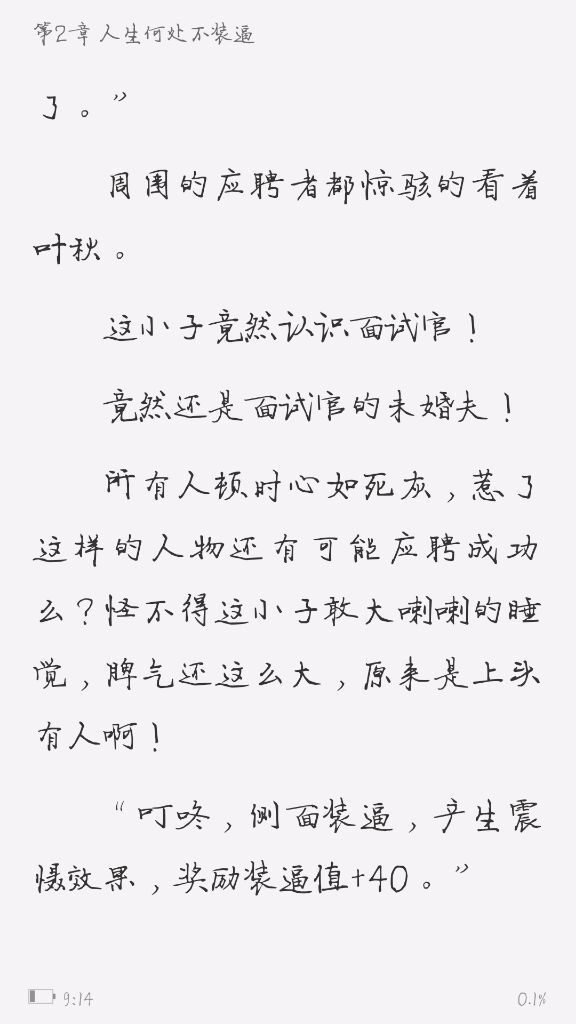 第2章 人生何处不装逼
了。”
周围的应聘者都惊骇的看着
叶秋。
这小子竟然认识面试官！
竟然还是面试官的未婚夫！
所有人顿时心如死灰，惹了
这样的人物还有可能应聘成功
么？怪不得这小子敢大喇喇的睡
觉，脾气还这么大，原来是上头
有人啊！
“叮咚，侧面装逼，产生震
慑效果，奖励装逼值+40。”
9:14
0.1%